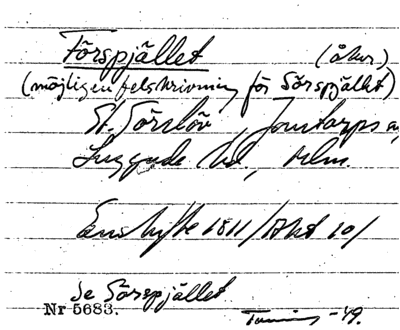 Förspjället (åker)
(möjligen felskrivning för Sörspjället)
St. Törslöv, Jonstorps
Luggude hd., Mlm.
Enskifte 1811/Akt 10/
Se Sörspjället
Nr 5683. -49.